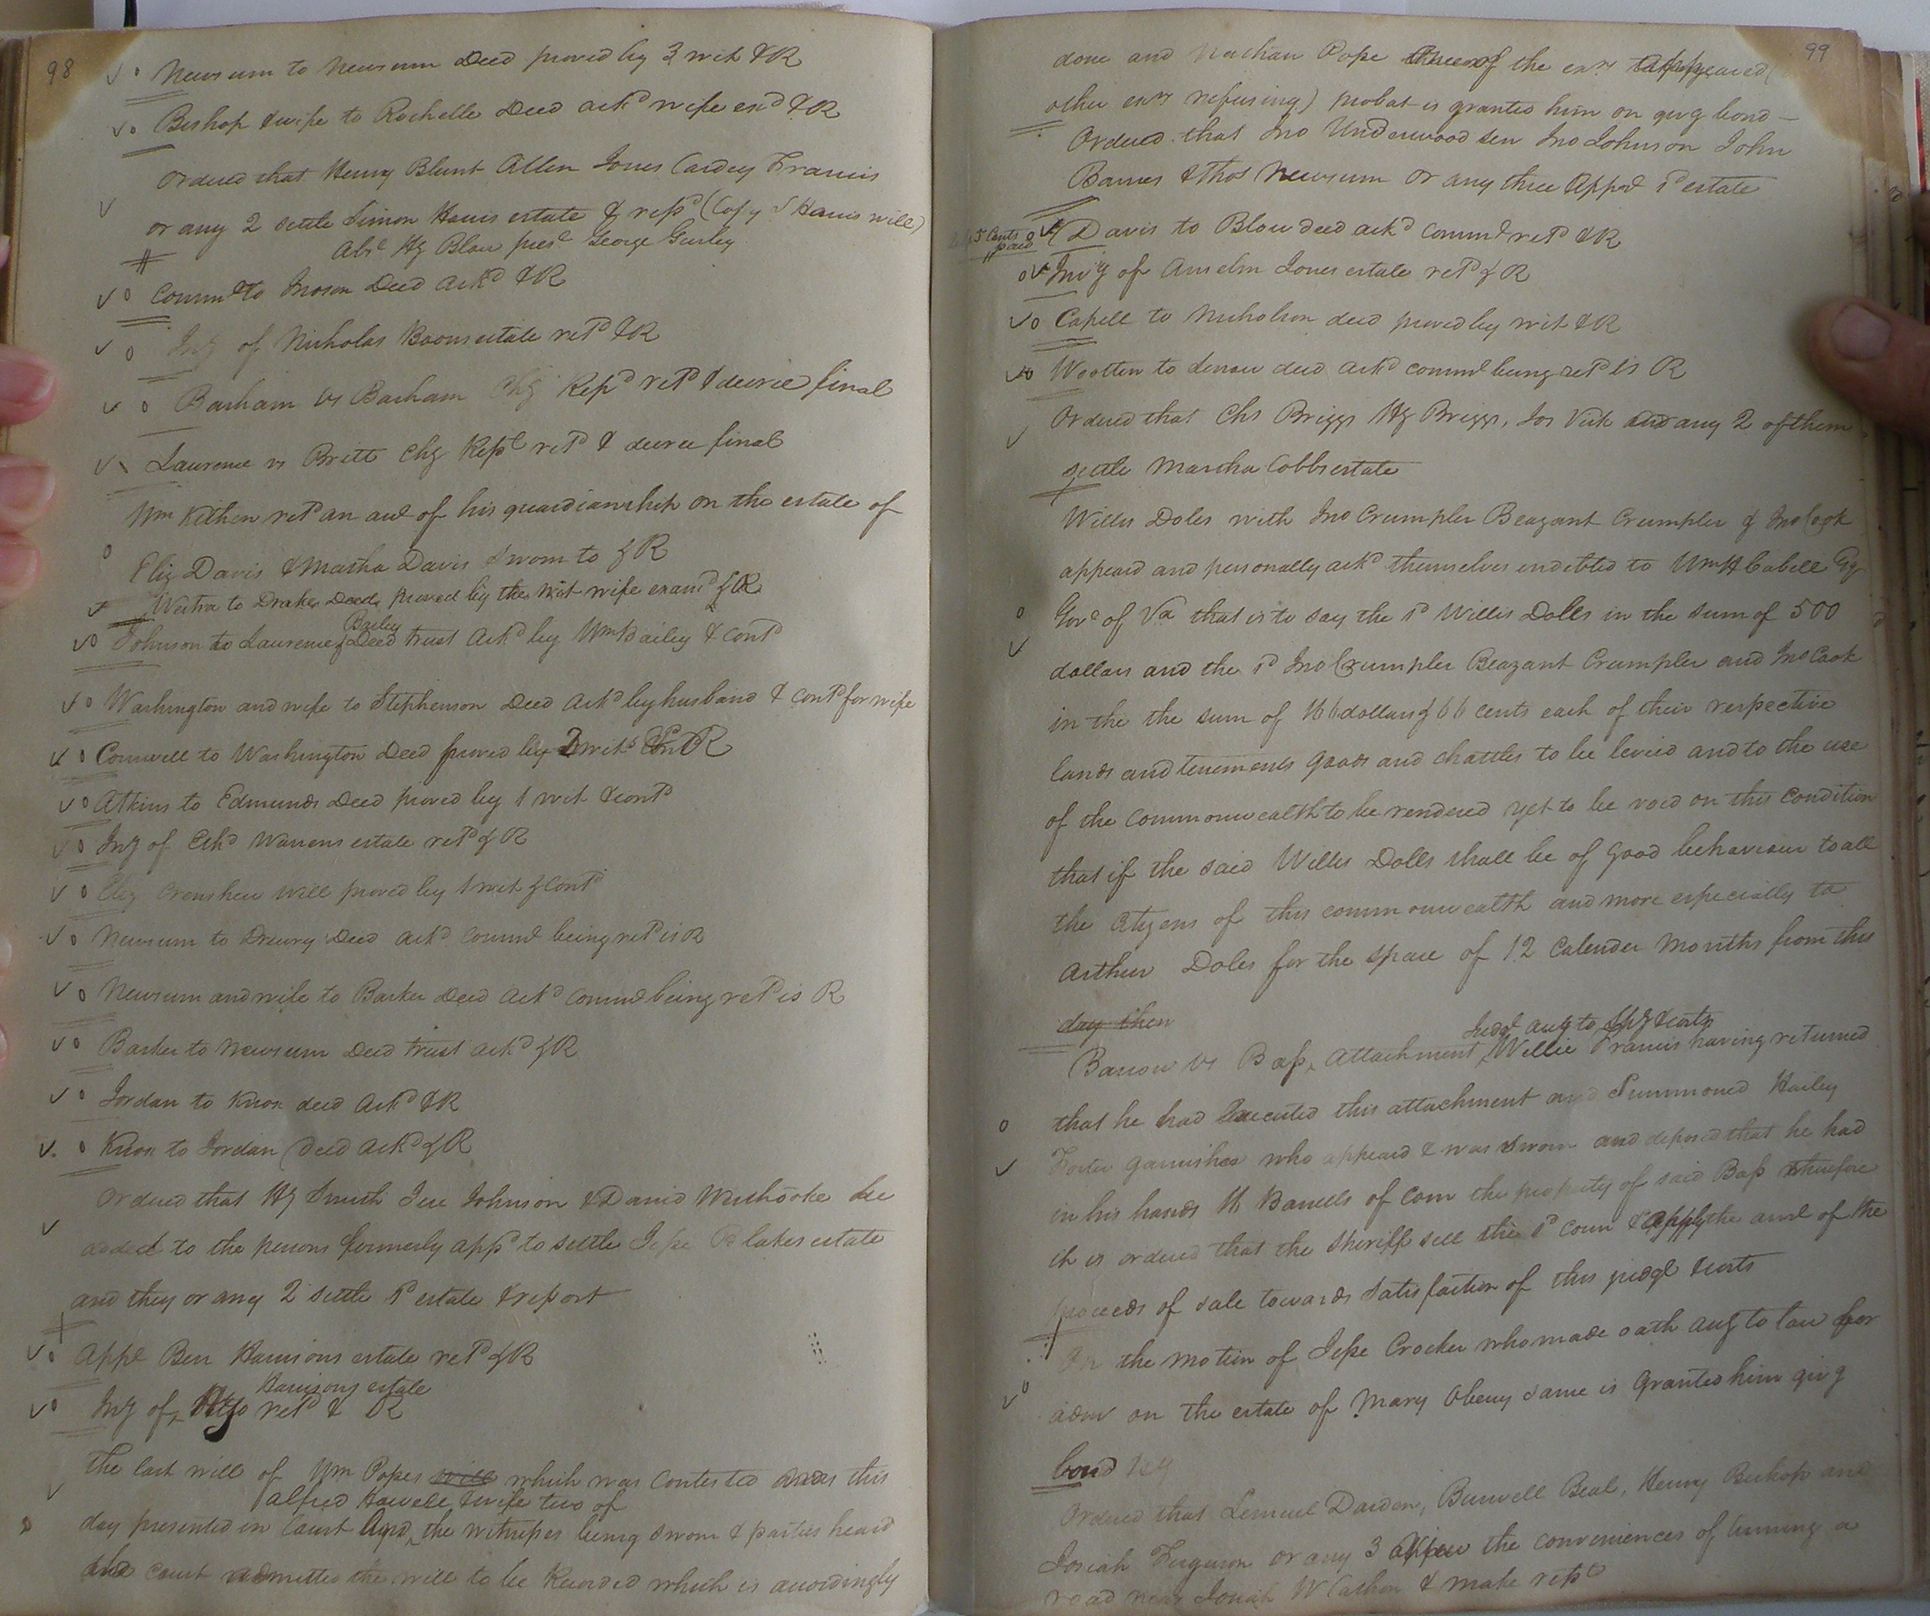 98
Newsum to Newsum Deed proved by 3 wit & R
Bishop & wife to Rochelle Deed ackd wife exd & R
Ordered that Henry Blunt Allen Jones Cardey Francis
or any 2 settle Simon Harris estate & rept (Copy S Harris will)
Absc Hy Blow presc George Gurley
Commrs to Inoson Deed Ackd & R
Invy of Nicholas Boons estate retd & R
Barham vs Barham Chy Repd retd & decree final
Laurence vs Britt Chy Rept retd & decree final
Wm Kitchen retd an acct of his guardianship on the estate of
Eliz Davis & Martha Davis sworn to & R
to Drake Deed proved by the wit wife examd & R
Bailey
Johnson to Laurence & Deed trust Ackd by Wm Bailey & contd
Washington and wife to Stephenson Deed Ackd by husband & contd for wife
Cornwell to Washington Deed proved by 2 wits & R
Atkins to Edmunds Deed proved by 1 wit & contd
Invy of Ethd Warrens estate retd & R
Eliz Crenshew will proved by 1 wit & contd
Newsum to Drewry Deed Ackd Commd being retd is R
Newsum and wife to Barker Deed Ackd Commd being retd is R
Barker to Newsum Deed trust ackd & R
Jordan to Knox deed Ackd & R
Knox to Jordan Deed Ackd & R
Ordered that Hy Smith Jere Johnson & David Westbrooke be
added to the persons formerly appd to settle Jesse Blakes estate
and they or any 2 settle sd estate & report
Appt Ben Harrisons estate retd & R
Harrisons estate
Invy of retd & R
The last will of Wm Popes will which was contested was this
Alfred Howell & wife two of
day presented in Court And the witnesses being sworn & parties heard
the court admitted the will to be Recorded which is accordingly
99
done and Nathan Pope one of the exrs appeared (
other exrs refusing) probat is granted him on givg bond —
Ordered that Jno Underwood sen Jno Johnson John
Barnes & Thos Newsum or any three Appd sd estate
75 Cents paid
Davis to Blow deed ackd commd retd & R
Invy of Anselm Jones estate retd & R
Capell to Nicholson deed proved by wit & R
Wootten to Denson deed ackd commd being retd is R
Ordered that Chs Briggs Hy Briggs, Jos Vick and any 2 of them
settle Martha Cobbs estate
Willis Doles with Jno Crumpler Beazant Crumpler & Jno Cook
appeard and personally ackd themselves endebted to Wm H Cabell Esqr
Govr of Va that is to say the sd Willis Dolls in the sum of 500
dollars and the sd Jno Crumpler Beazant Crumpler and Jno Cook
in the the sum of 166 dollars & 66 cents each of their respective
lands and tenements goods and chattles to be levied and to the use
of the commonwealth to be rendered yet to be void on this condition
that if the said Willis Dolls shall be of good behaviour to all
the Citizens of this commonwealth and more especially to
Arthur Doles for the space of 12 Calender months from this
day then
Judgt accg to Spy & costs
Barrow vs Bass Attachment Willie Francis having returned
that he had Executed this attachment and Summoned Hailey
Foster garnishee who appeard & was sworn and deposed that he had
in his hands 16 Barrels of Corn the property of said Bass therefore
it is ordered that the Sheriff sell the sd corn & apply the amt of the
proceeds of sale towards satisfaction of this judgt & costs
On the motion of Jesse Crocker who made oath accg to law for
admr on the estate of Mary Obeny same is granted him givg
bond
Ordered that Lemuel Darden, Burwell Beal, Henry Bishop and
Josiah Ferguson or any 3 of View the conveniences of turning a
road near Josiah W Cathon & make rept